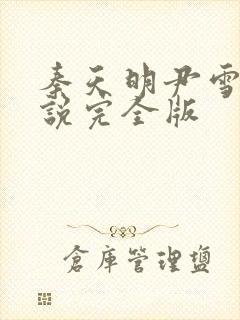 秦天明尹雪
說完全版
倉庫管理鹽